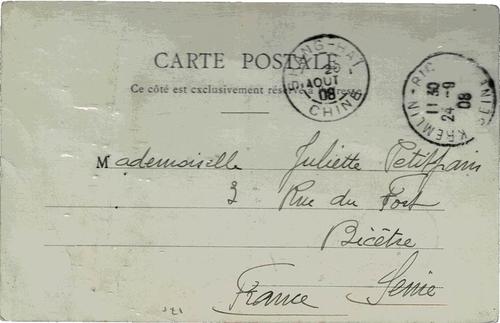 CARTE POSTALE
Ce côté est exclusivement réservé à l'adresse
SHANG-HAI
20
AOUT
08
CHINE
KREMLIN-BIC
11 30
24-9
08
SEINE
Mademoiselle Juliette Petitpain
2 Rue du Fort
Bicêtre
France Seine